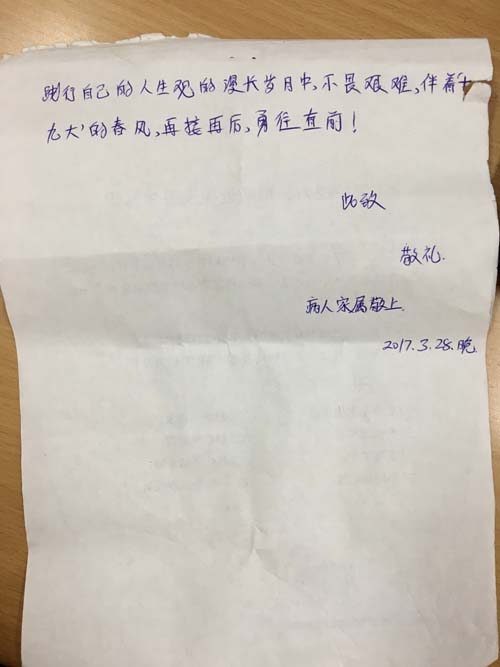 践行自己的人生观的漫长岁月中,不畏艰难,伴着十
九大'的春风,再接再后,勇往直前!
此致
敬礼.
病人家属敬上.
2017.3.28.晚